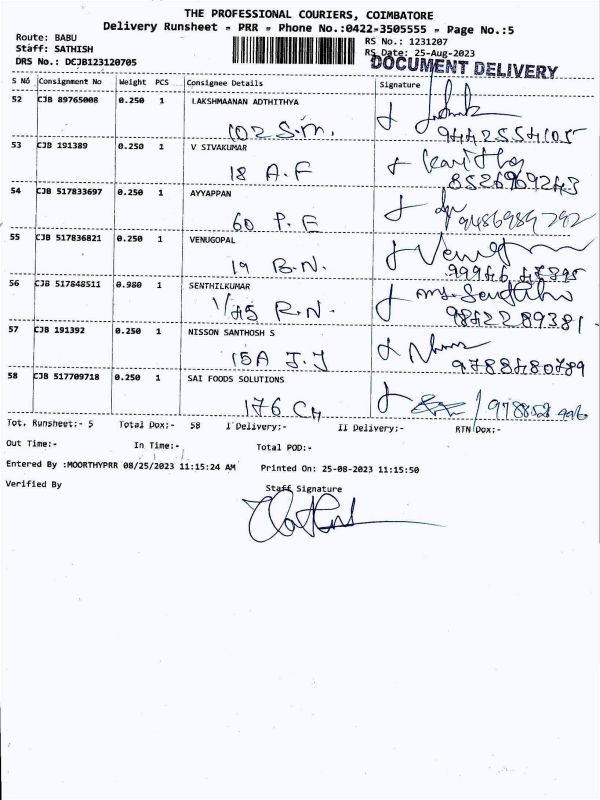 THE PROFESSIONAL COURIERS, COIMBATORE
Delivery Runsheet - PRR - Phone No.:0422-3505555 - Page No.:5
Route: BABU
RS No.: 1231207
Staff: SATHISH
RS Date: 25-Aug-2023
DRS No.: DCJB123120705
DOCUMENT DELIVERY
S NO Consignment No Weight PCS Consignee Details Signature
52 CJB 89765008 0.250 1 LAKSHMAANAN ADHTITHYA
102 S.M. 9442554105
53 CJB 191389 0.250 1 V SIVAKUMAR
18 A.F 8526969243
54 CJB 517833697 0.250 1 AYYAPPAN
60 P.E 9486989292
55 CJB 517836821 0.250 1 VENUGOPAL
19 B.N.
56 CJB 517848511 0.980 1 SENTHILKUMAR
1/45 R.N. 9842289381
57 CJB 191392 0.250 1 NISSON SANTHOSH S
15A J.J 9788480789
58 CJB 517709718 0.250 1 SAI FOODS SOLUTIONS
176 CH
Tot. Runsheet:- 5 Total Dox:- 58 I Delivery:- II Delivery:- RTN Dox:-
Out Time:- In Time:- Total POD:-
Entered By :MOORTHYPRR 08/25/2023 11:15:24 AM Printed On: 25-08-2023 11:15:50
Verified By Staff Signature